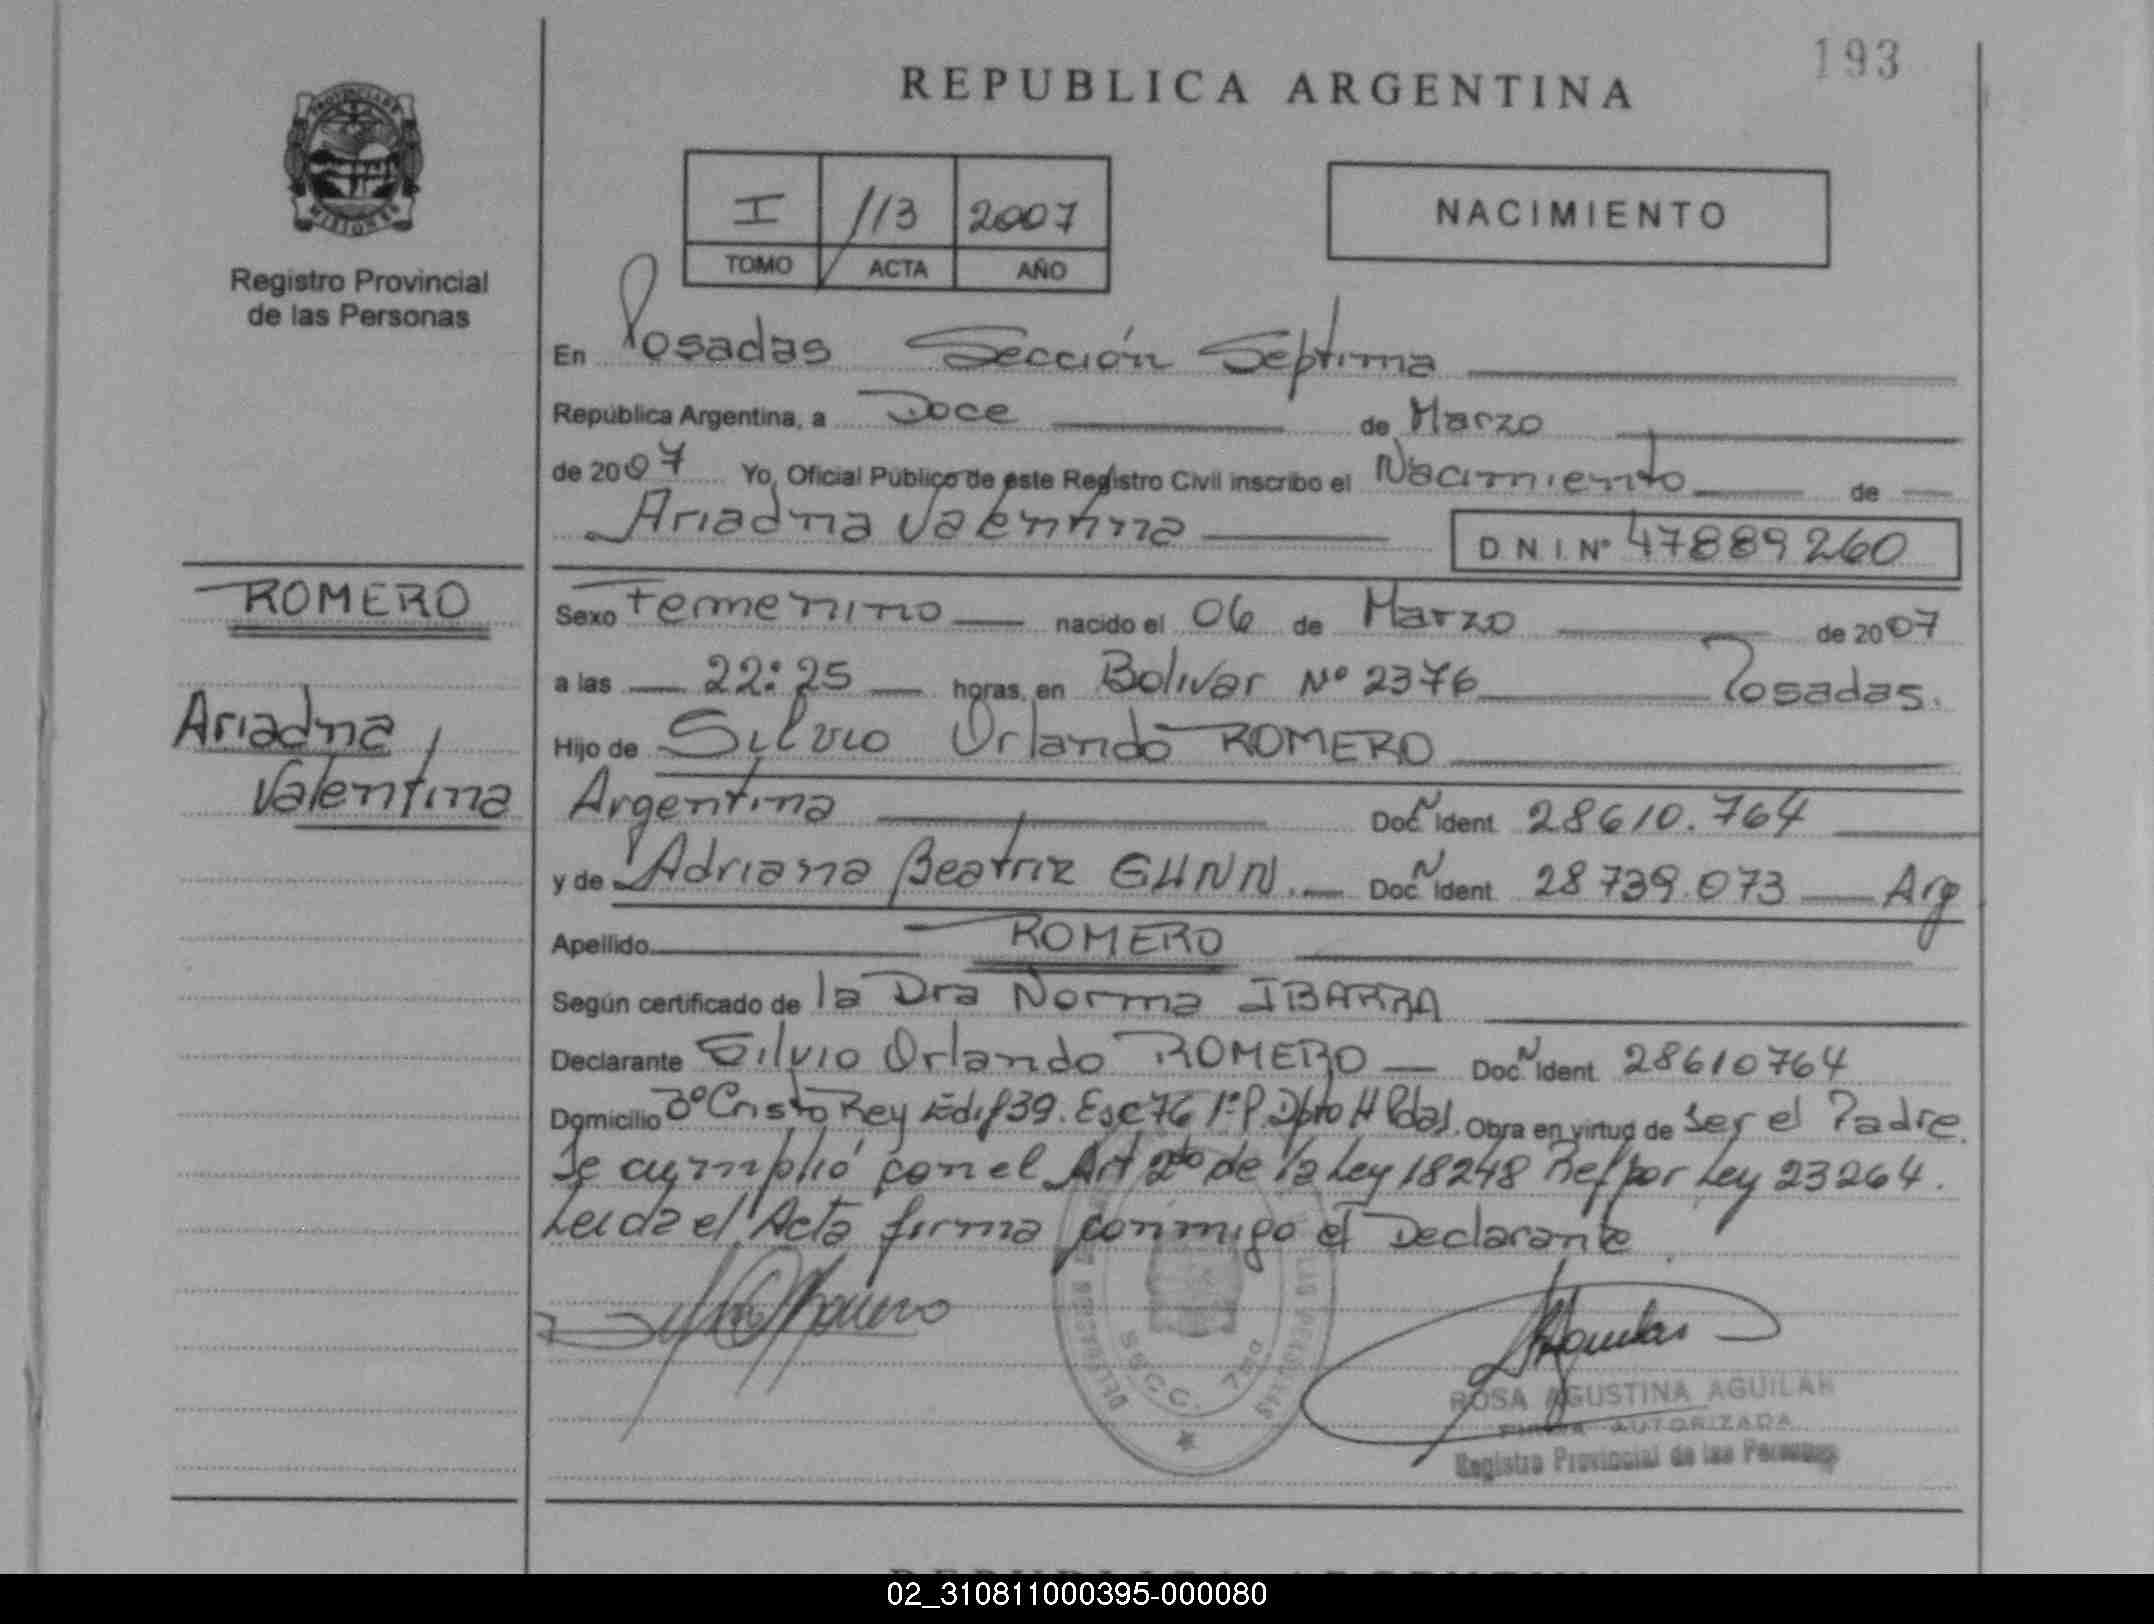 193
REPUBLICA ARGENTINA
PROVINCIA DE
MISIONES
Registro Provincial
de las Personas
I 113 2007
TOMO ACTA AÑO
NACIMIENTO
En Posadas Sección Septima
República Argentina, a Doce de Marzo
de 2007 Yo, Oficial Público de este Registro Civil inscribo el Nacimiento de
Ariadna Valentina D N I. Nº 47889260
ROMERO
Ariadna
Valentina
Sexo Femenino nacido el 06 de Marzo de 2007
a las 22:25 horas, en Bolivar Nº 2376 Posadas.
Hijo de Silvio Orlando ROMERO
Argentina Doc. N Ident. 28610.764
y de Adriana Beatriz GHNN. Doc. N Ident. 28739.073 Arg
Apellido ROMERO
Según certificado de la Dra Norma IBARRA
Declarante Silvio Orlando ROMERO Doc. N Ident. 28610764
Domicilio Bº Cristo Rey Edif 39. Esc 76 1º P. Dpto H Pdas. Obra en virtud de ser el Padre.
Se cumplió con el Art 2do de la Ley 18248 Ref por Ley 23264.
Leida el Acta firma conmigo el Declarante
ROSA AGUSTINA AGUILAR
FIRMA AUTORIZADA
Registro Provincial de las Personas
02_310811000395-000080